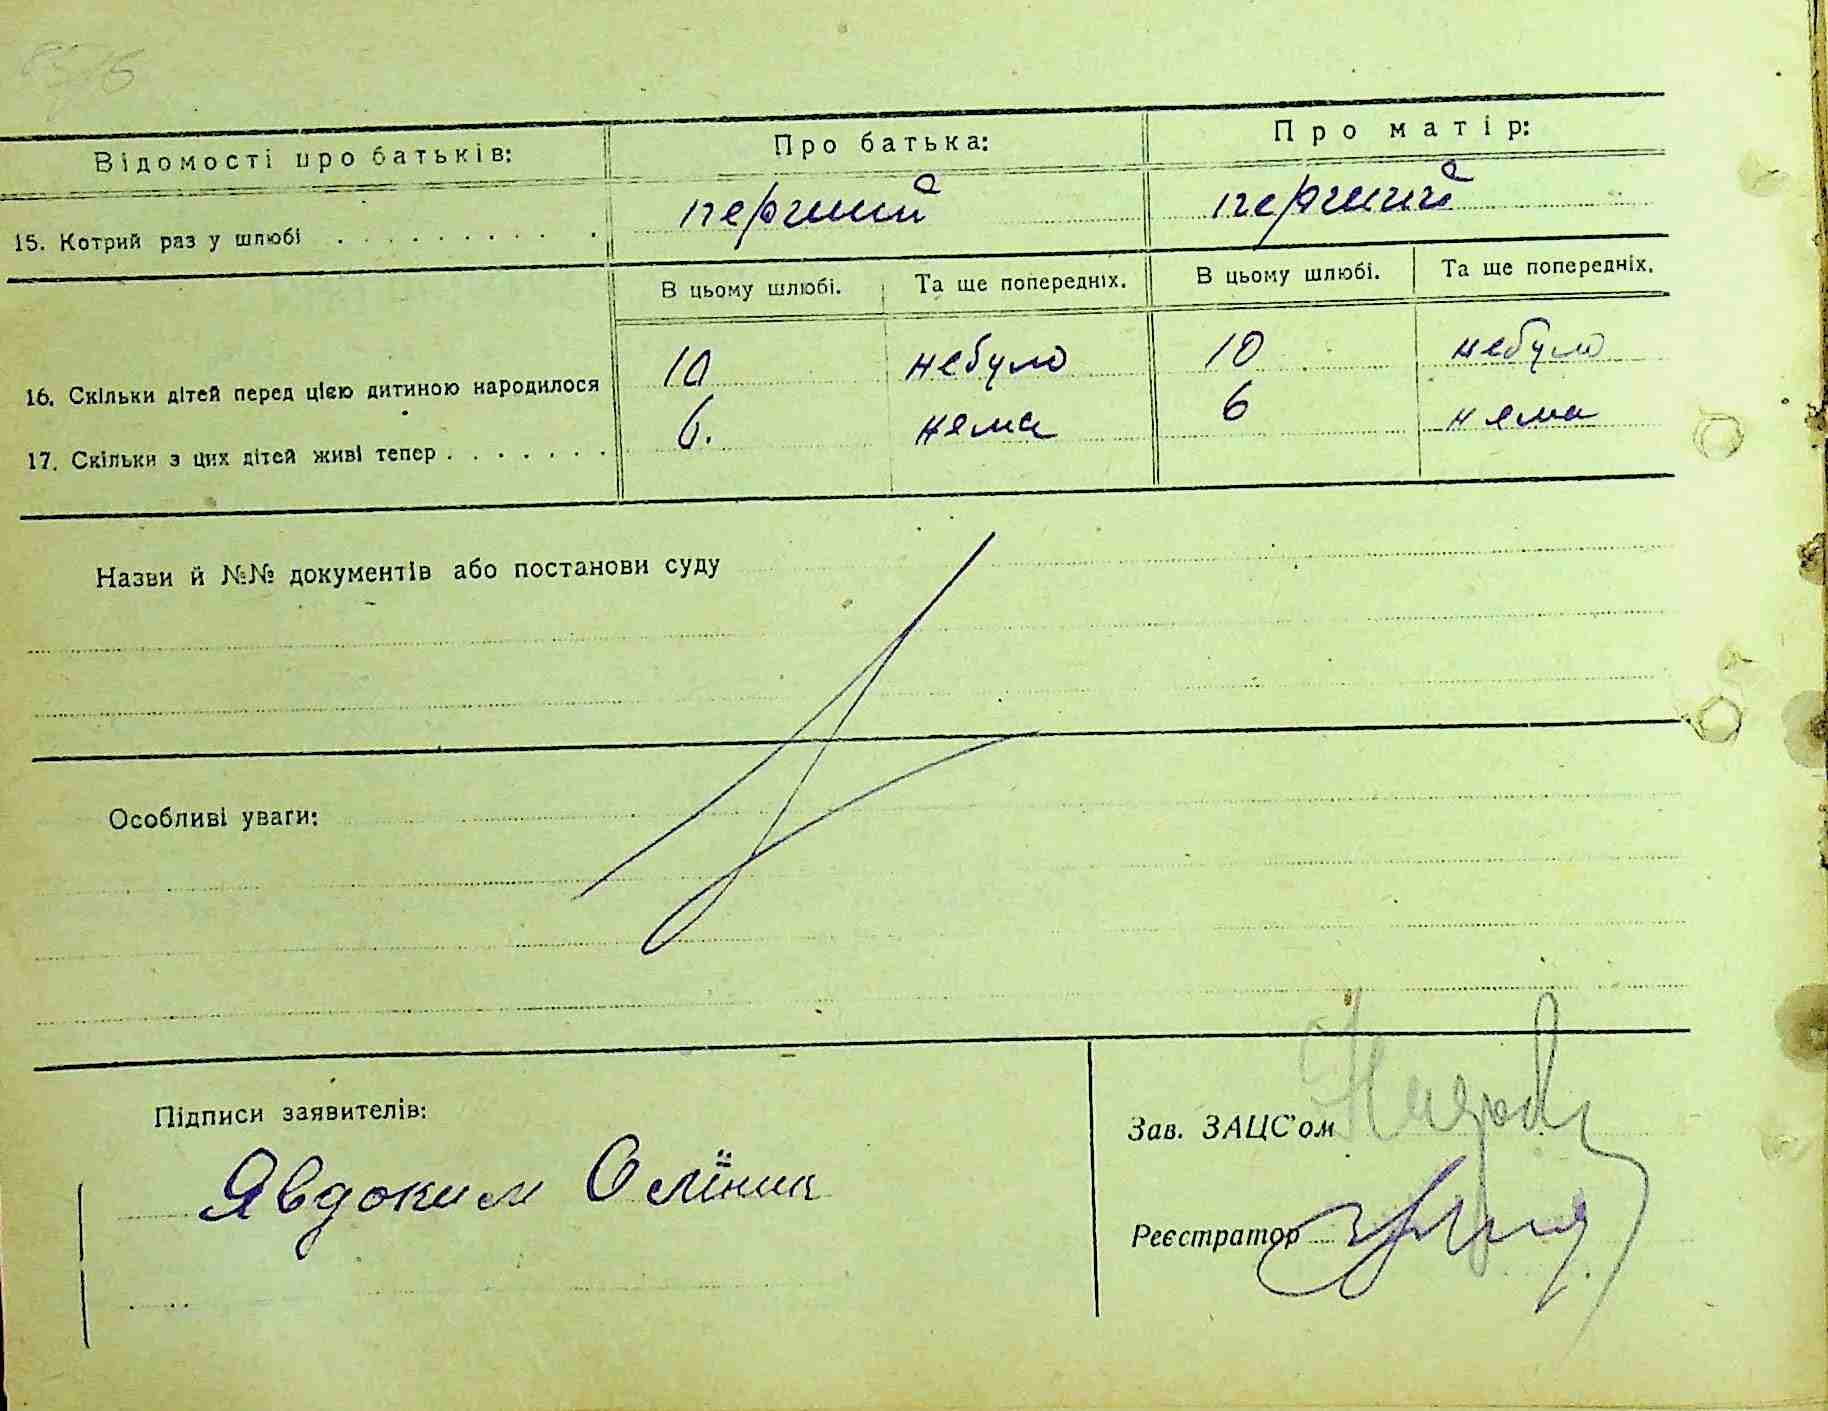 Відомості про батьків: Про батька: Про матір:
15. Котрий раз у шлюбі . . . . . . . . . . перший перший
В цьому шлюбі. Та ще попередніх. В цьому шлюбі. Та ще попередніх.
16. Скільки дітей перед цією дитиною народилося 10 небуло 10 небуло
17. Скільки з цих дітей живі тепер . . . . . . . 6. нема 6 нема
Назви й №№ документів або постанови суду
Особливі уваги:
Підписи заявителів:
Явдоким Олїник
Зав. ЗАЦС'ом
Реєстратор